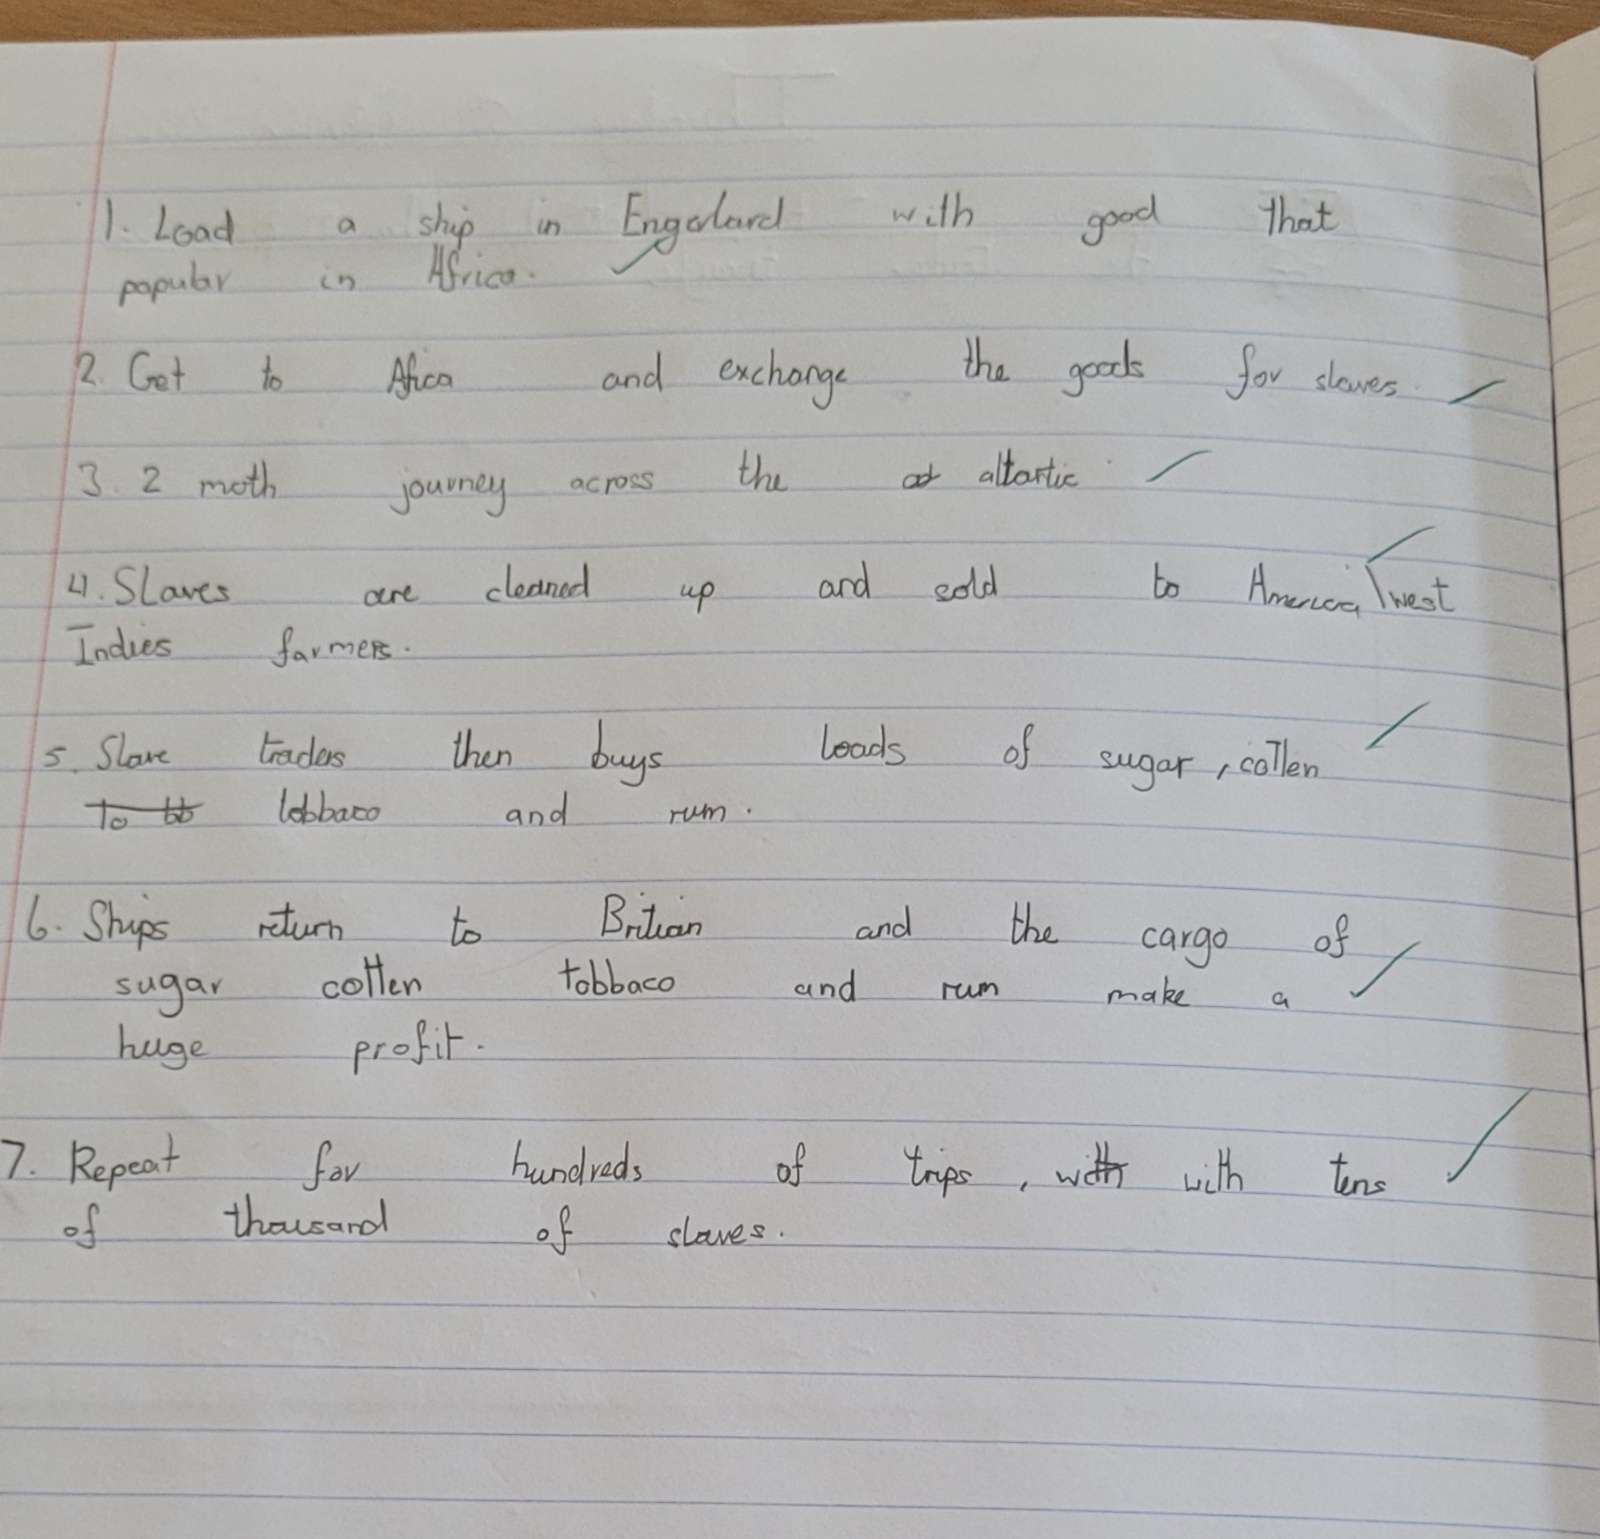 1. Load a ship in Engerland with good that
popular in Africa.
2. Get to Africa and exchange the goods for slaves.
3. 2 moth journey across the at altartic
4. Slaves are cleaned up and sold to America \ west
Indies farmers.
5. Slave traders then buys loads of sugar, cotten
To bb tobbaco and rum.
6. Ships return to Britian and the cargo of
sugar cotten tobbaco and rum make a
huge profit.
7. Repeat for hundreds of trips, with with tens
of thousand of slaves.